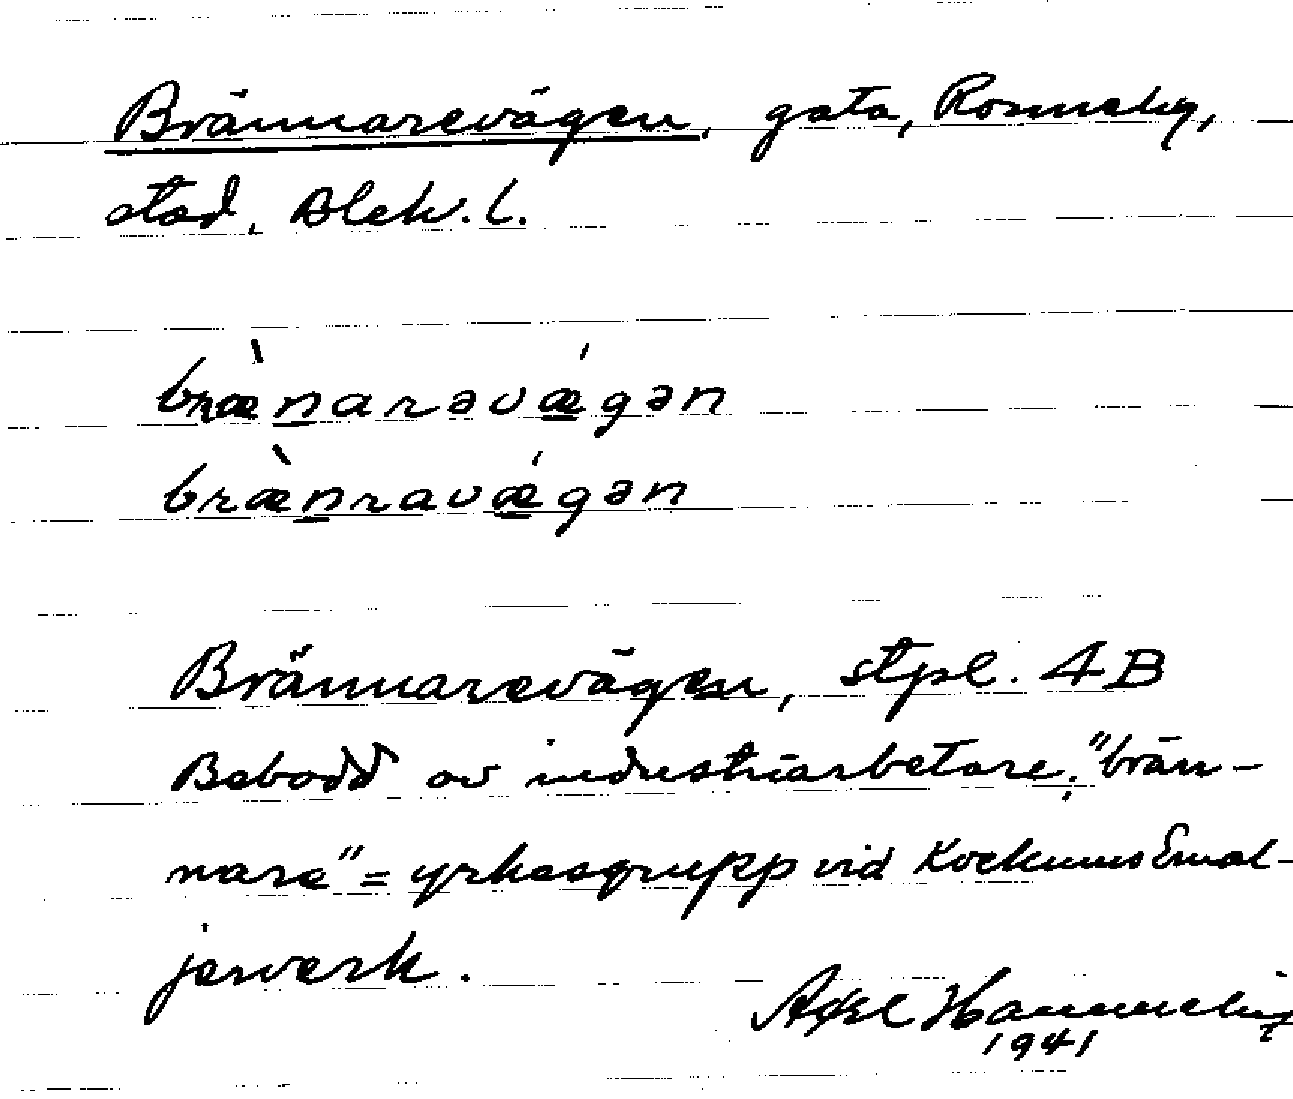 Brännarevägen, gata, Ronneby,
stad, Blek. l.
bræ̀narəvǽgən
bræ̀nravǽgən
Brännarevägen, stpl. 4B
Bebodd av industriarbetare. "brän-
nare" = yrkesgrupp vid Kockums Emal-
jerverk.
Axel Hammeby
1941